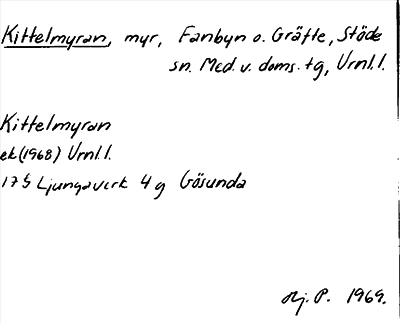 Kittelmyran, myr, Fanbyn o. Gräfte, Stöde
sn. Med. v. doms. tg, Vrnl. l.
Kittelmyran
ek (1968) Vrnl. l.
17 G Ljungaverk 4 g Gösunda
Hj. P. 1969.